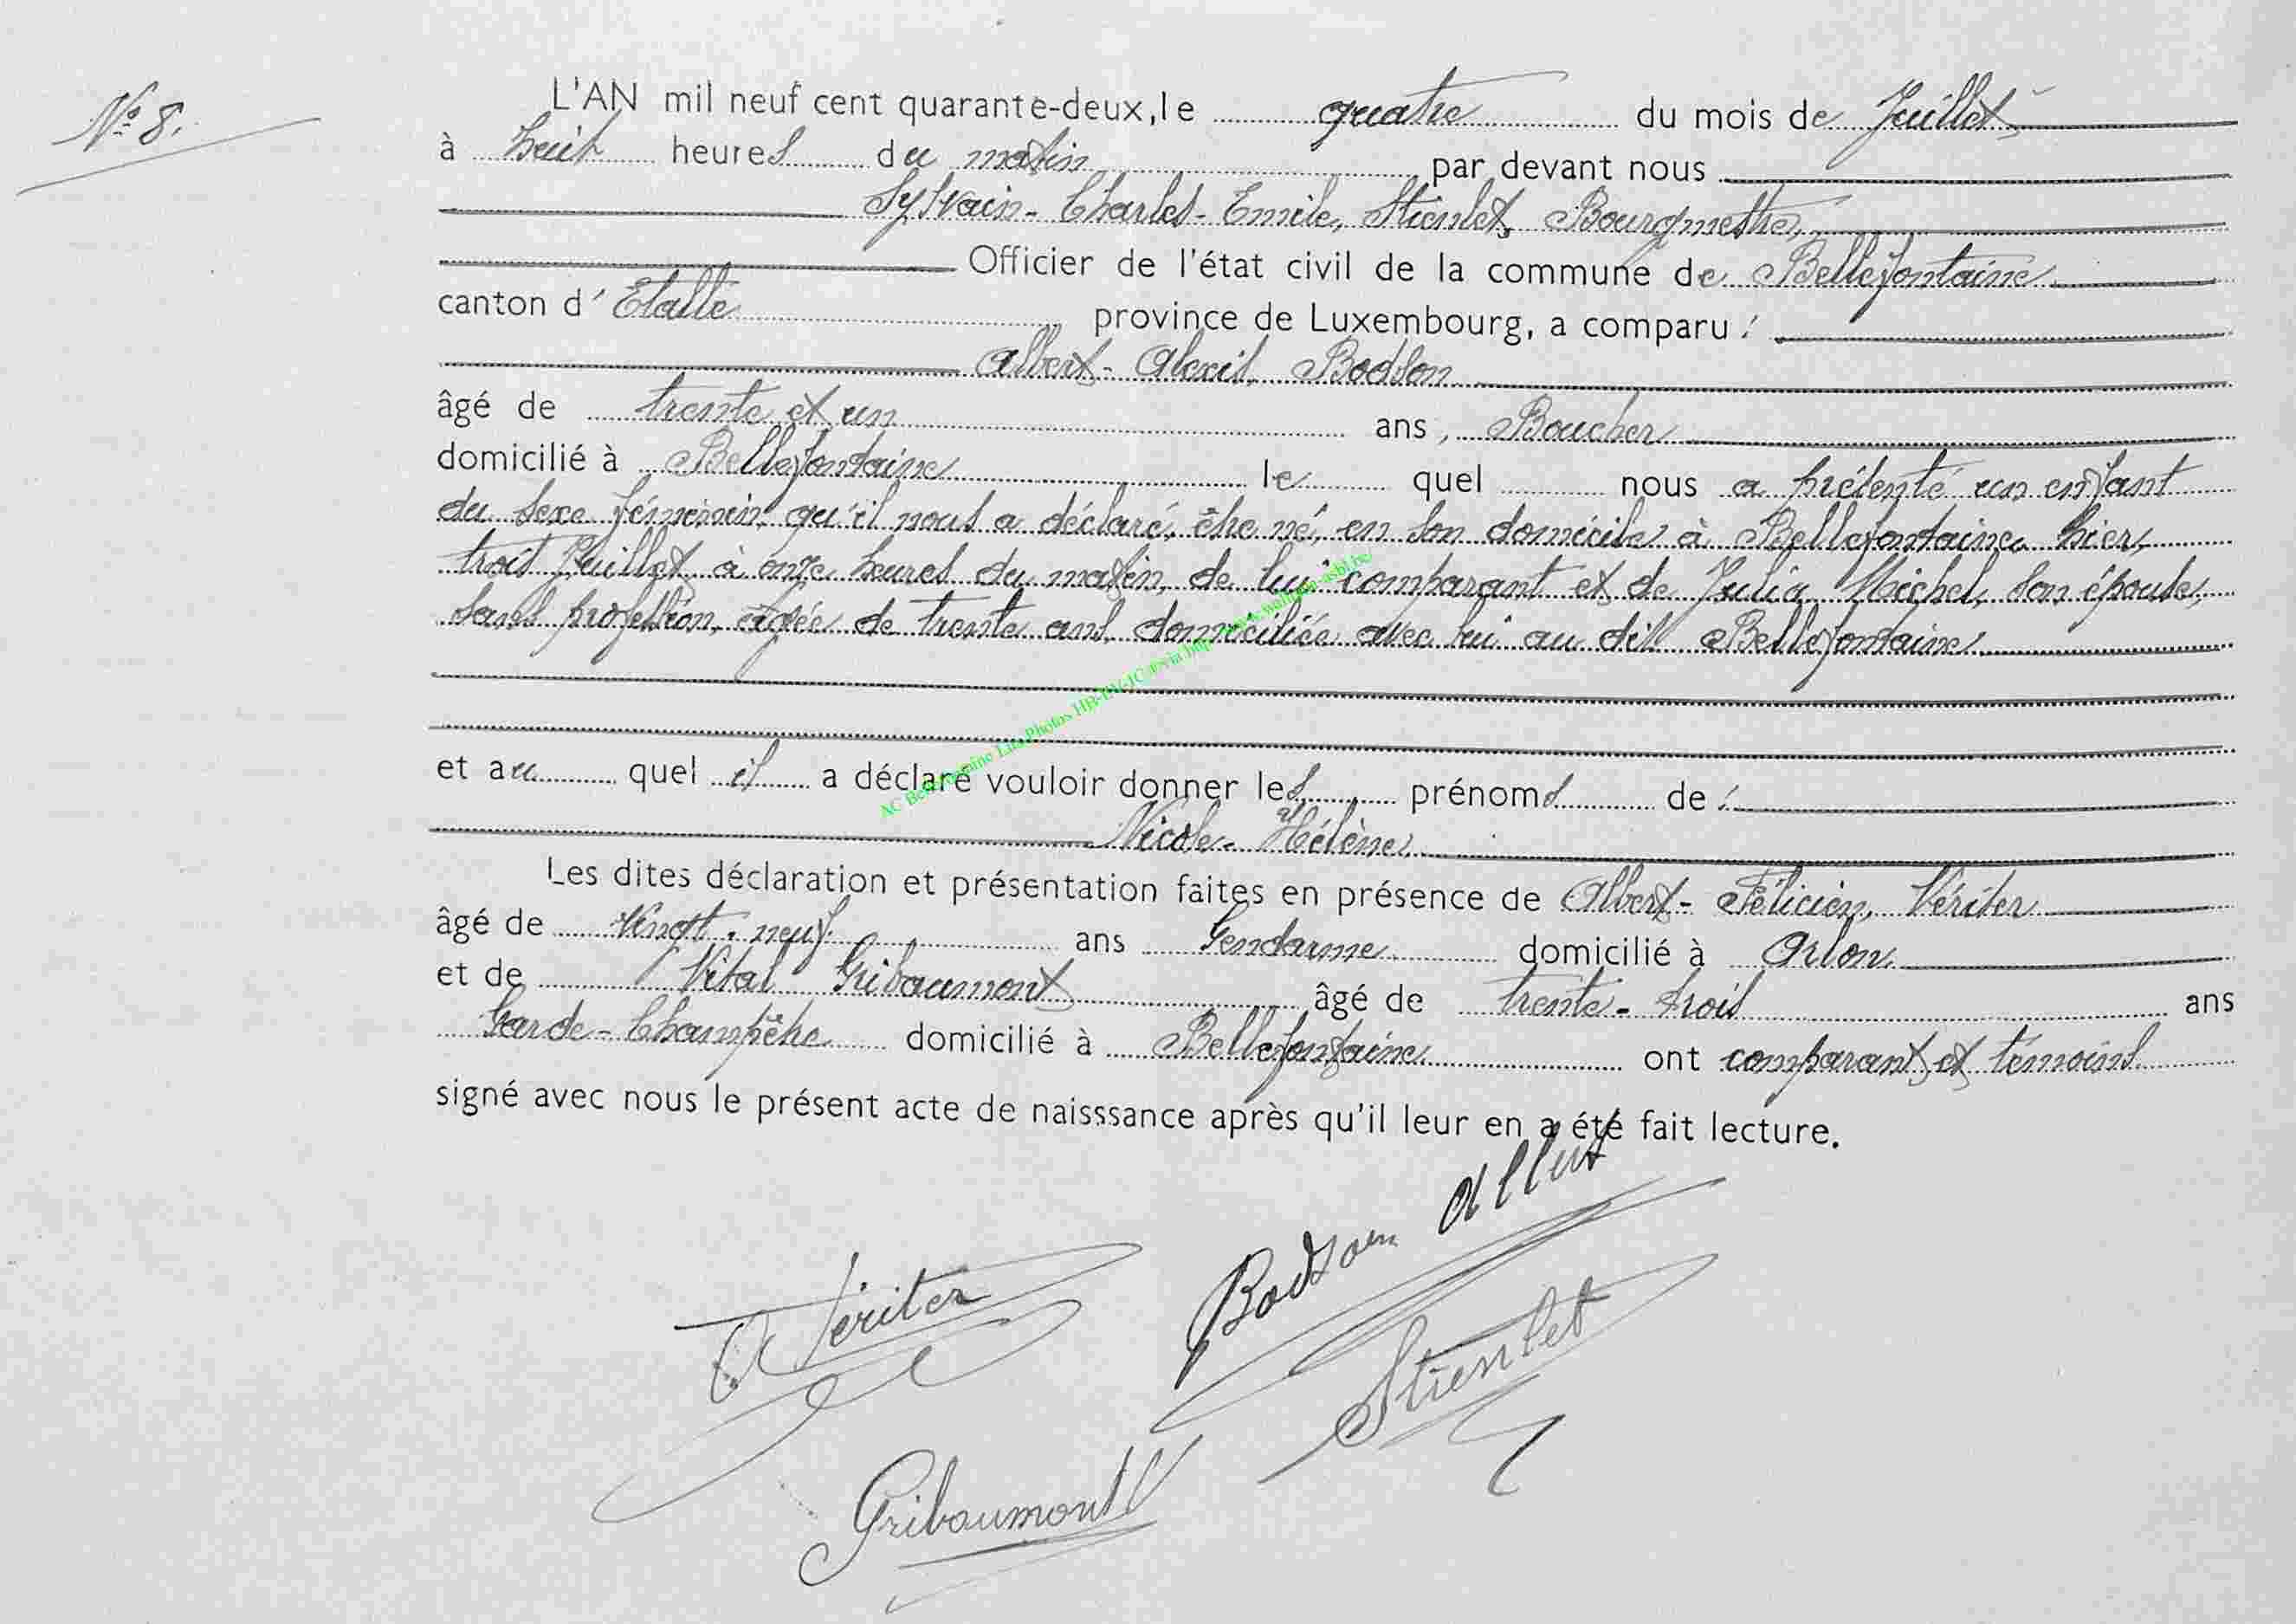 N° 8.
L'AN mil neuf cent quarante-deux, le quatre du mois de Juillet
à huit heures du matin par devant nous
Sylvain-Charles-Emile, Stienlet, Bourgmestre,
Officier de l'état civil de la commune de Bellefontaine
canton d'Etalle province de Luxembourg, a comparu :
Albert-Alexis, Bodson
âgé de trente et un ans, Boucher
domicilié à Bellefontaine le quel nous a présenté un enfant
du sexe féminin, qu'il nous a déclaré, être né, en son domicile à Bellefontaine, hier,
trois Juillet, à onze heures du matin, de lui comparant et de Julia, Michel, son épouse,
sans profession, âgée de trente ans, domiciliée avec lui au dit Bellefontaine
et au quel il a déclaré vouloir donner les prénoms de :
Nicole-Hélène
Les dites déclaration et présentation faites en présence de Albert-Félicien, Vériter
âgé de vingt-neuf ans Gendarme domicilié à Arlon
et de Vital Gribaumont âgé de trente-trois ans
Garde-Champêtre domicilié à Bellefontaine ont comparant et témoins
signé avec nous le présent acte de naisssance après qu'il leur en a été fait lecture.
Bodson Albert
A Vériter
Stienlet
Gribaumont V
AC Bellefontaine Photos